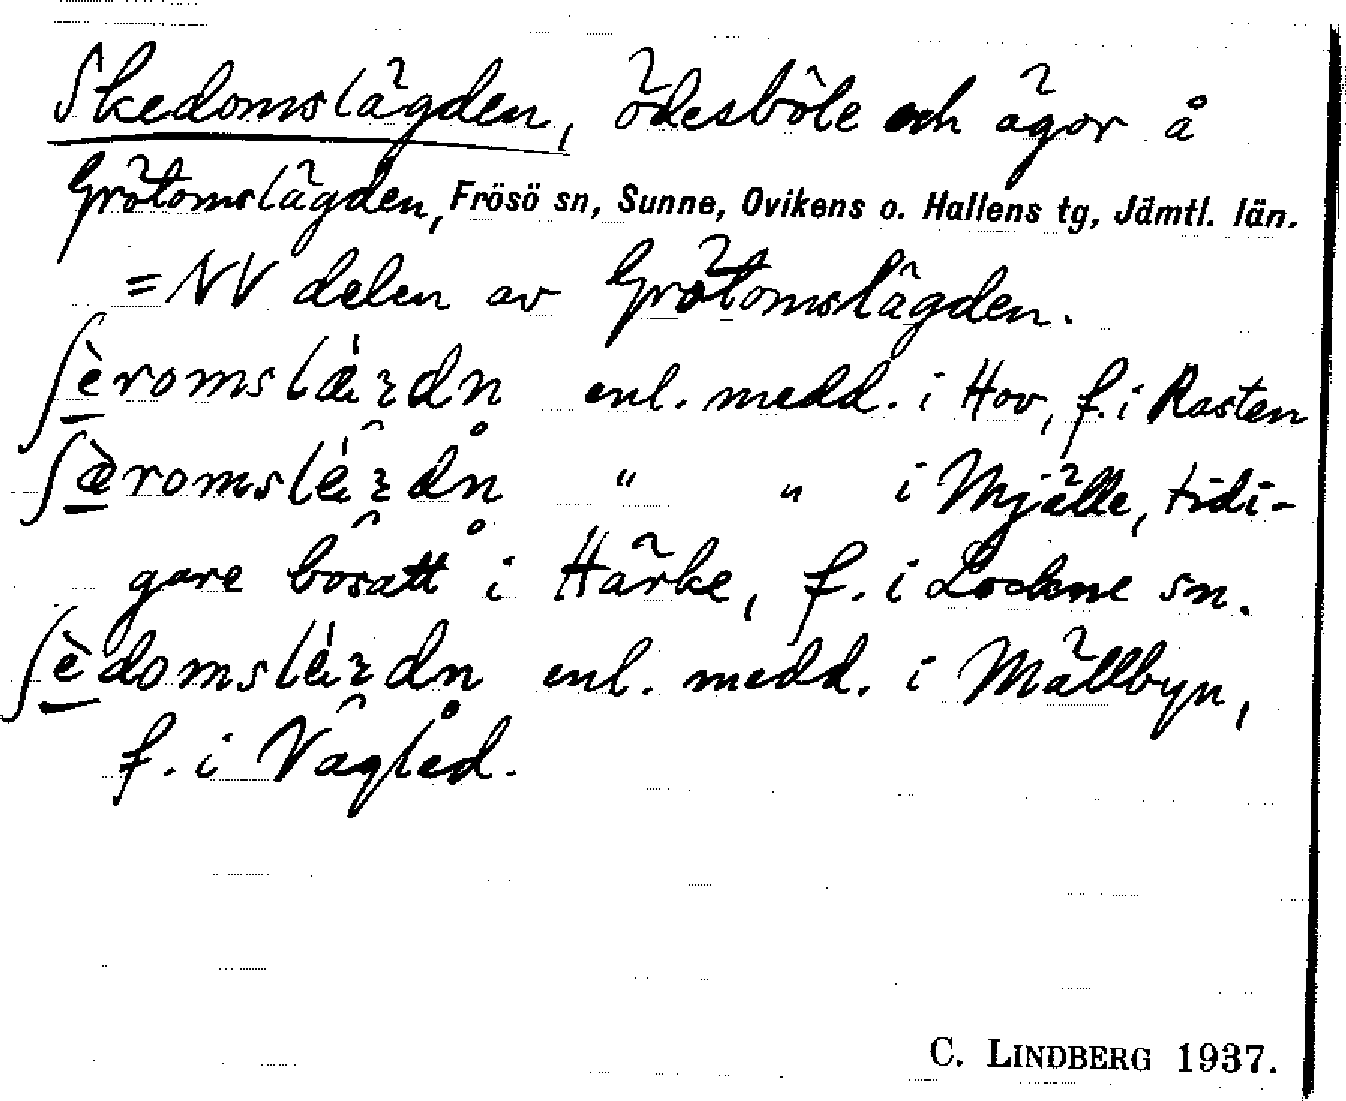 Skedomslägden, ödesböle och ägor å
Grötomslägden, Frösö sn, Sunne, Ovikens o. Hallens tg, Jämtl. län.
= NV delen av Grötomslägden.
ʃè̱romslæ̀ɛdn̥ enl. medd. i Hov, f. i Rasten
ʃæ̱̀romslèɛdn̥ " " i Mjälle, tidi-
gare bosatt i Härke, f. i Lockne sn.
ʃè̱domslèɛdn̥ enl. medd. i Mällbyn,
f. i Vagled.
C. LINDBERG 1937.